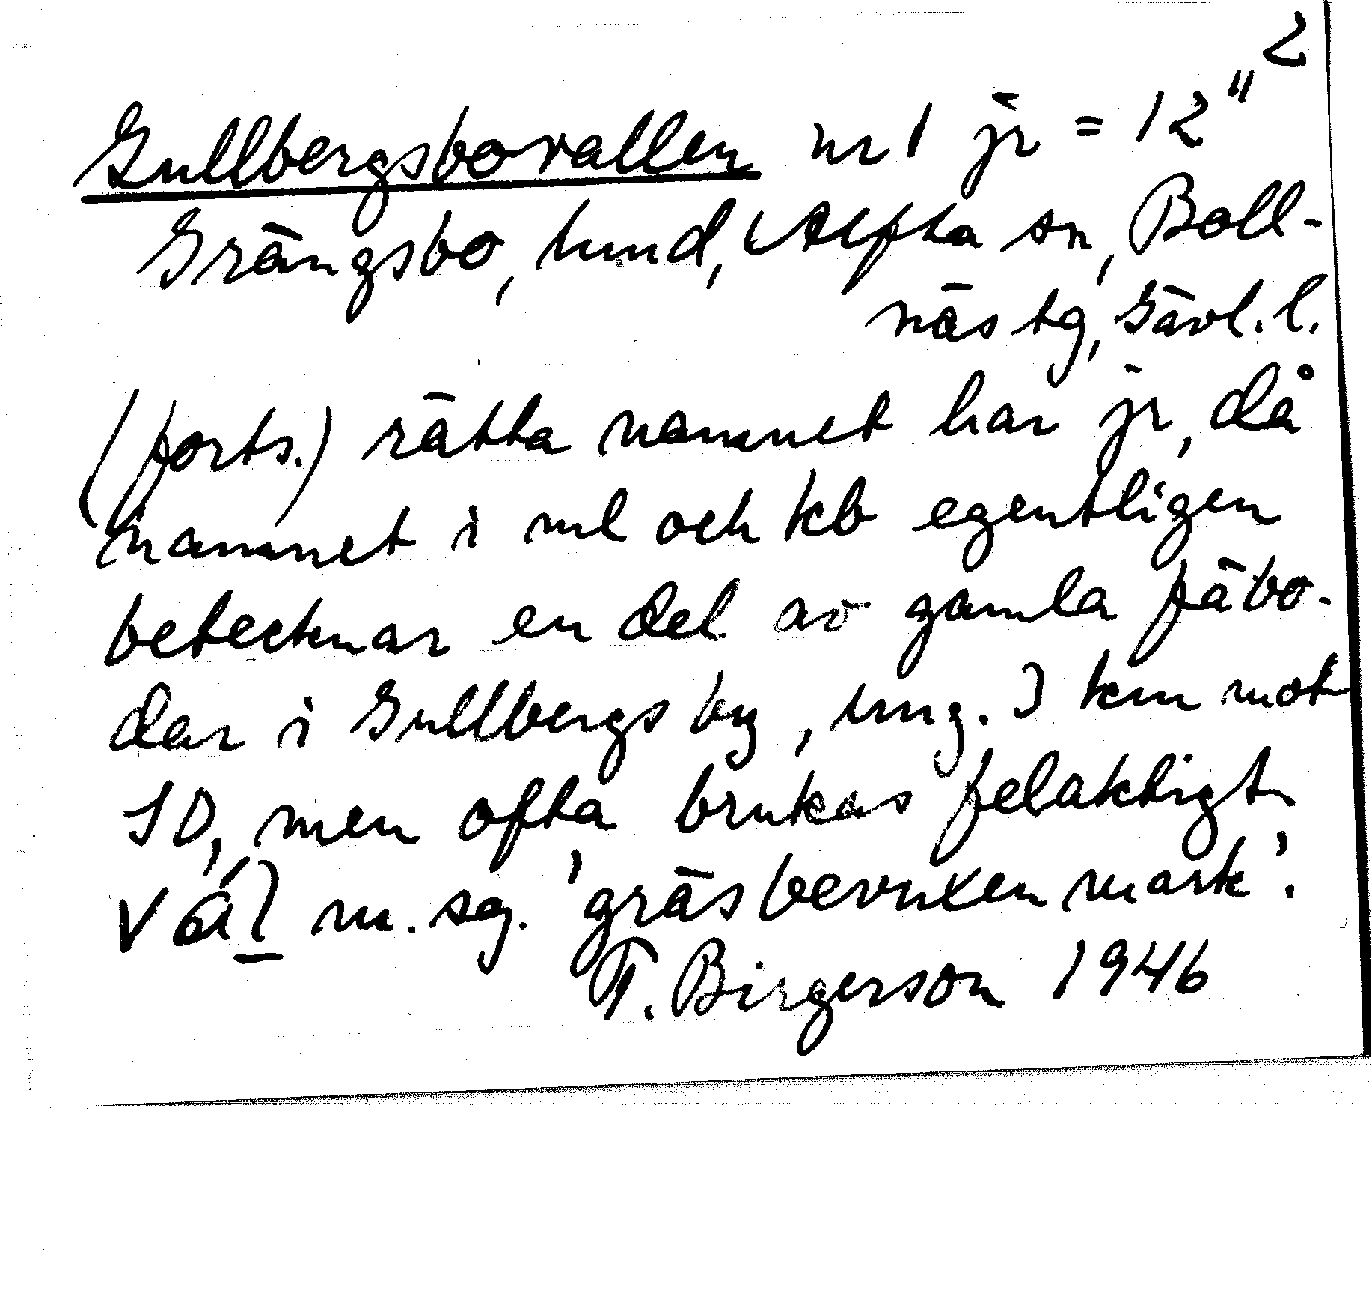 2
Gullbergsbovallen nr 1 jr = 12"
Grängsbo, lund, Alfta sn, Boll-
näs tg, Gävl. l.
(forts.) rätta namnet har jr, då
namnet i ml och kb egentligen
betecknar en del av gamla fäbo-
dar i Gullbergs by, ung. 3 km mot
SO, men ofta brukas felaktigt
m. sg. 'gräsbevuxen mark'.
T. Birgerson 1946